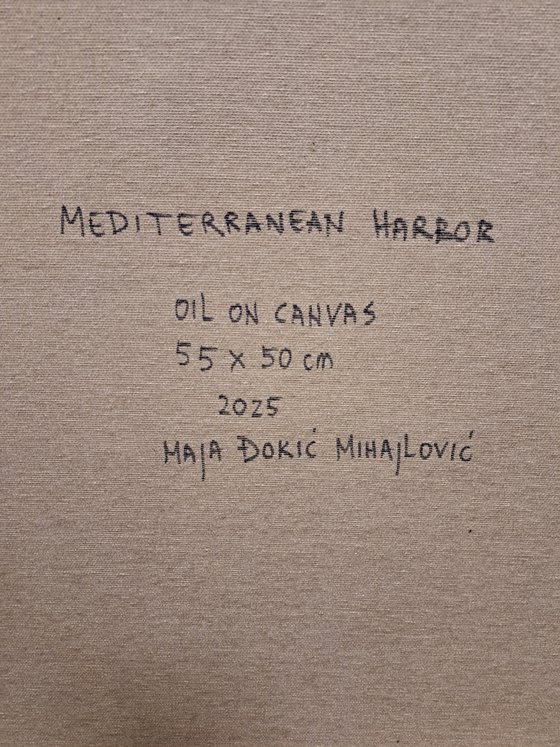 MEDITERRANEAN HARBOR
OIL ON CANVAS
55 x 50 cm
2025
MAJA ĐOKIĆ MIHAJLOVIĆ